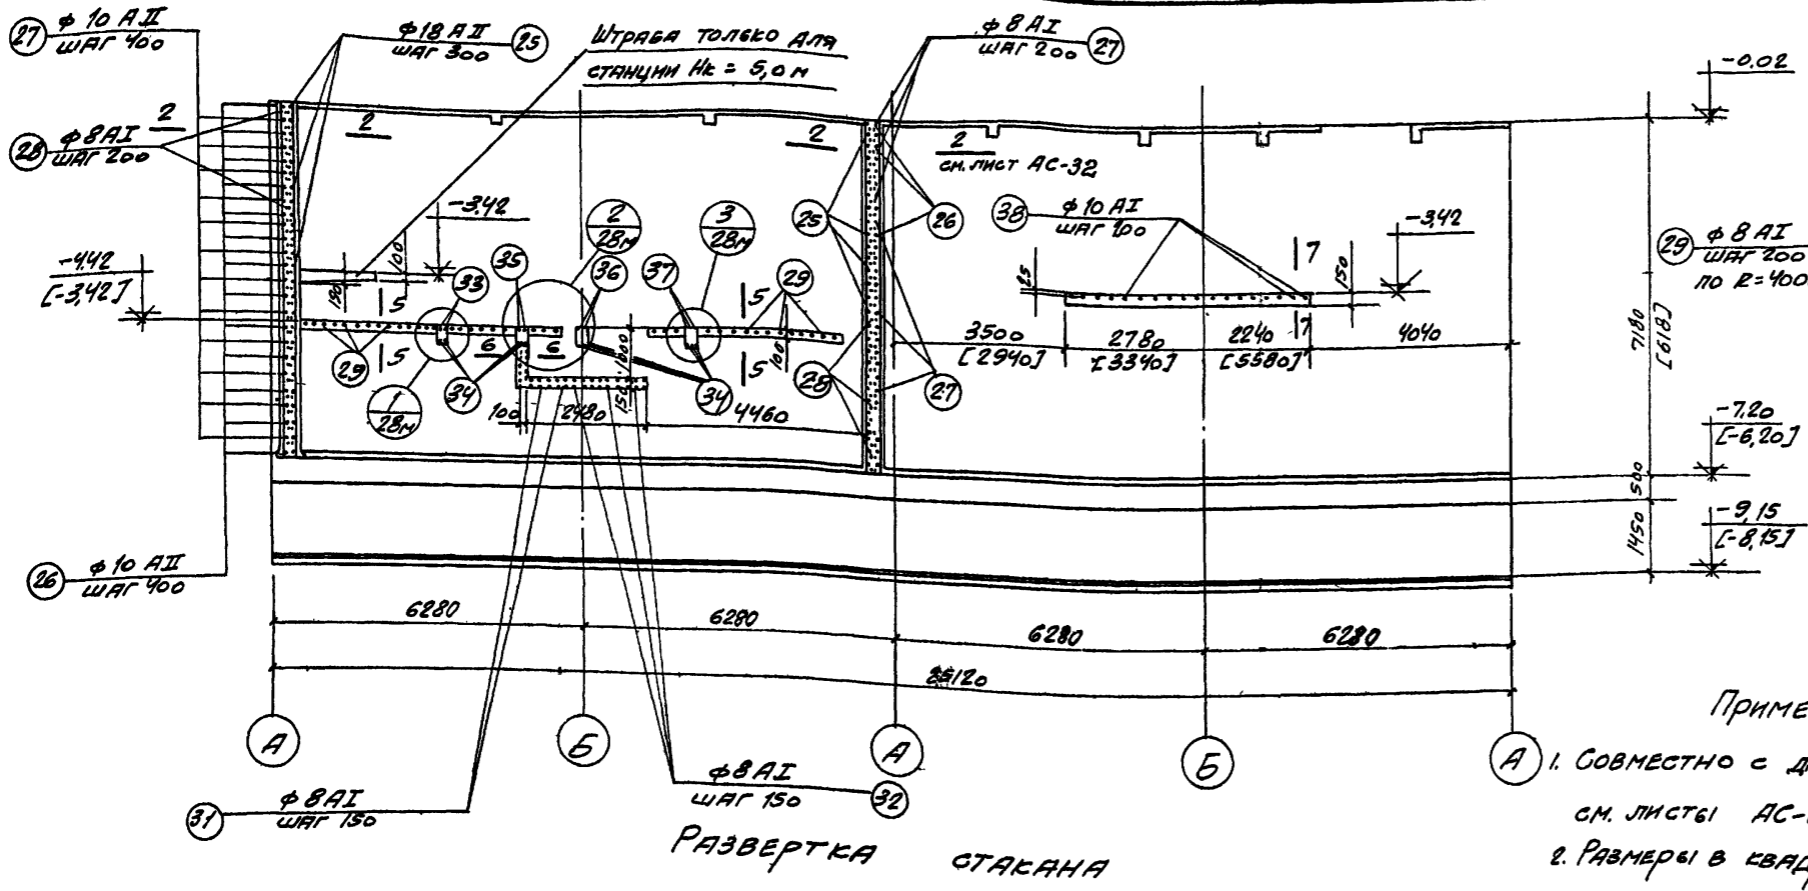 27 ф 10 АII
ШАГ 400
ф18 АII 25
ШАГ 300
ШТРАБА ТОЛЬКО ДЛЯ
СТАНЦИИ Нк = 5,0 м
ф 8 АI
ШАГ 200 27
-0.02
28 ф 8 АI 2
ШАГ 200
2
2
2
СМ. ЛИСТ АС-32
-3,42
2
28м
3
28м
25
26
38 ф 10 АI
ШАГ 200
-3,42
29 ф 8 АI
ШАГ 200
-4.42
[-3,42]
190
100
5
33
35
36
37
29
5
25
7
150
7
7180
[618]
29
5
34
6
6
1000
5
100
28
27
34
3500
[2940]
2780
[3340]
2240
[5580]
4040
1
28м
100
2480
150
4460
-7.20
[-6,20]
500
1450
-9,15
[-8,15]
26 ф 10 АII
ШАГ 400
6280
6280
6280
6280
25120
А
Б
А
Б
А
31 ф 8 АI
ШАГ 150
ф 8 АI
ШАГ 150 32
РАЗВЕРТКА СТАКАНА
ПРИМЕ
1. СОВМЕСТНО С
СМ. ЛИСТЫ АС-
2. РАЗМЕРЫ В КВАД